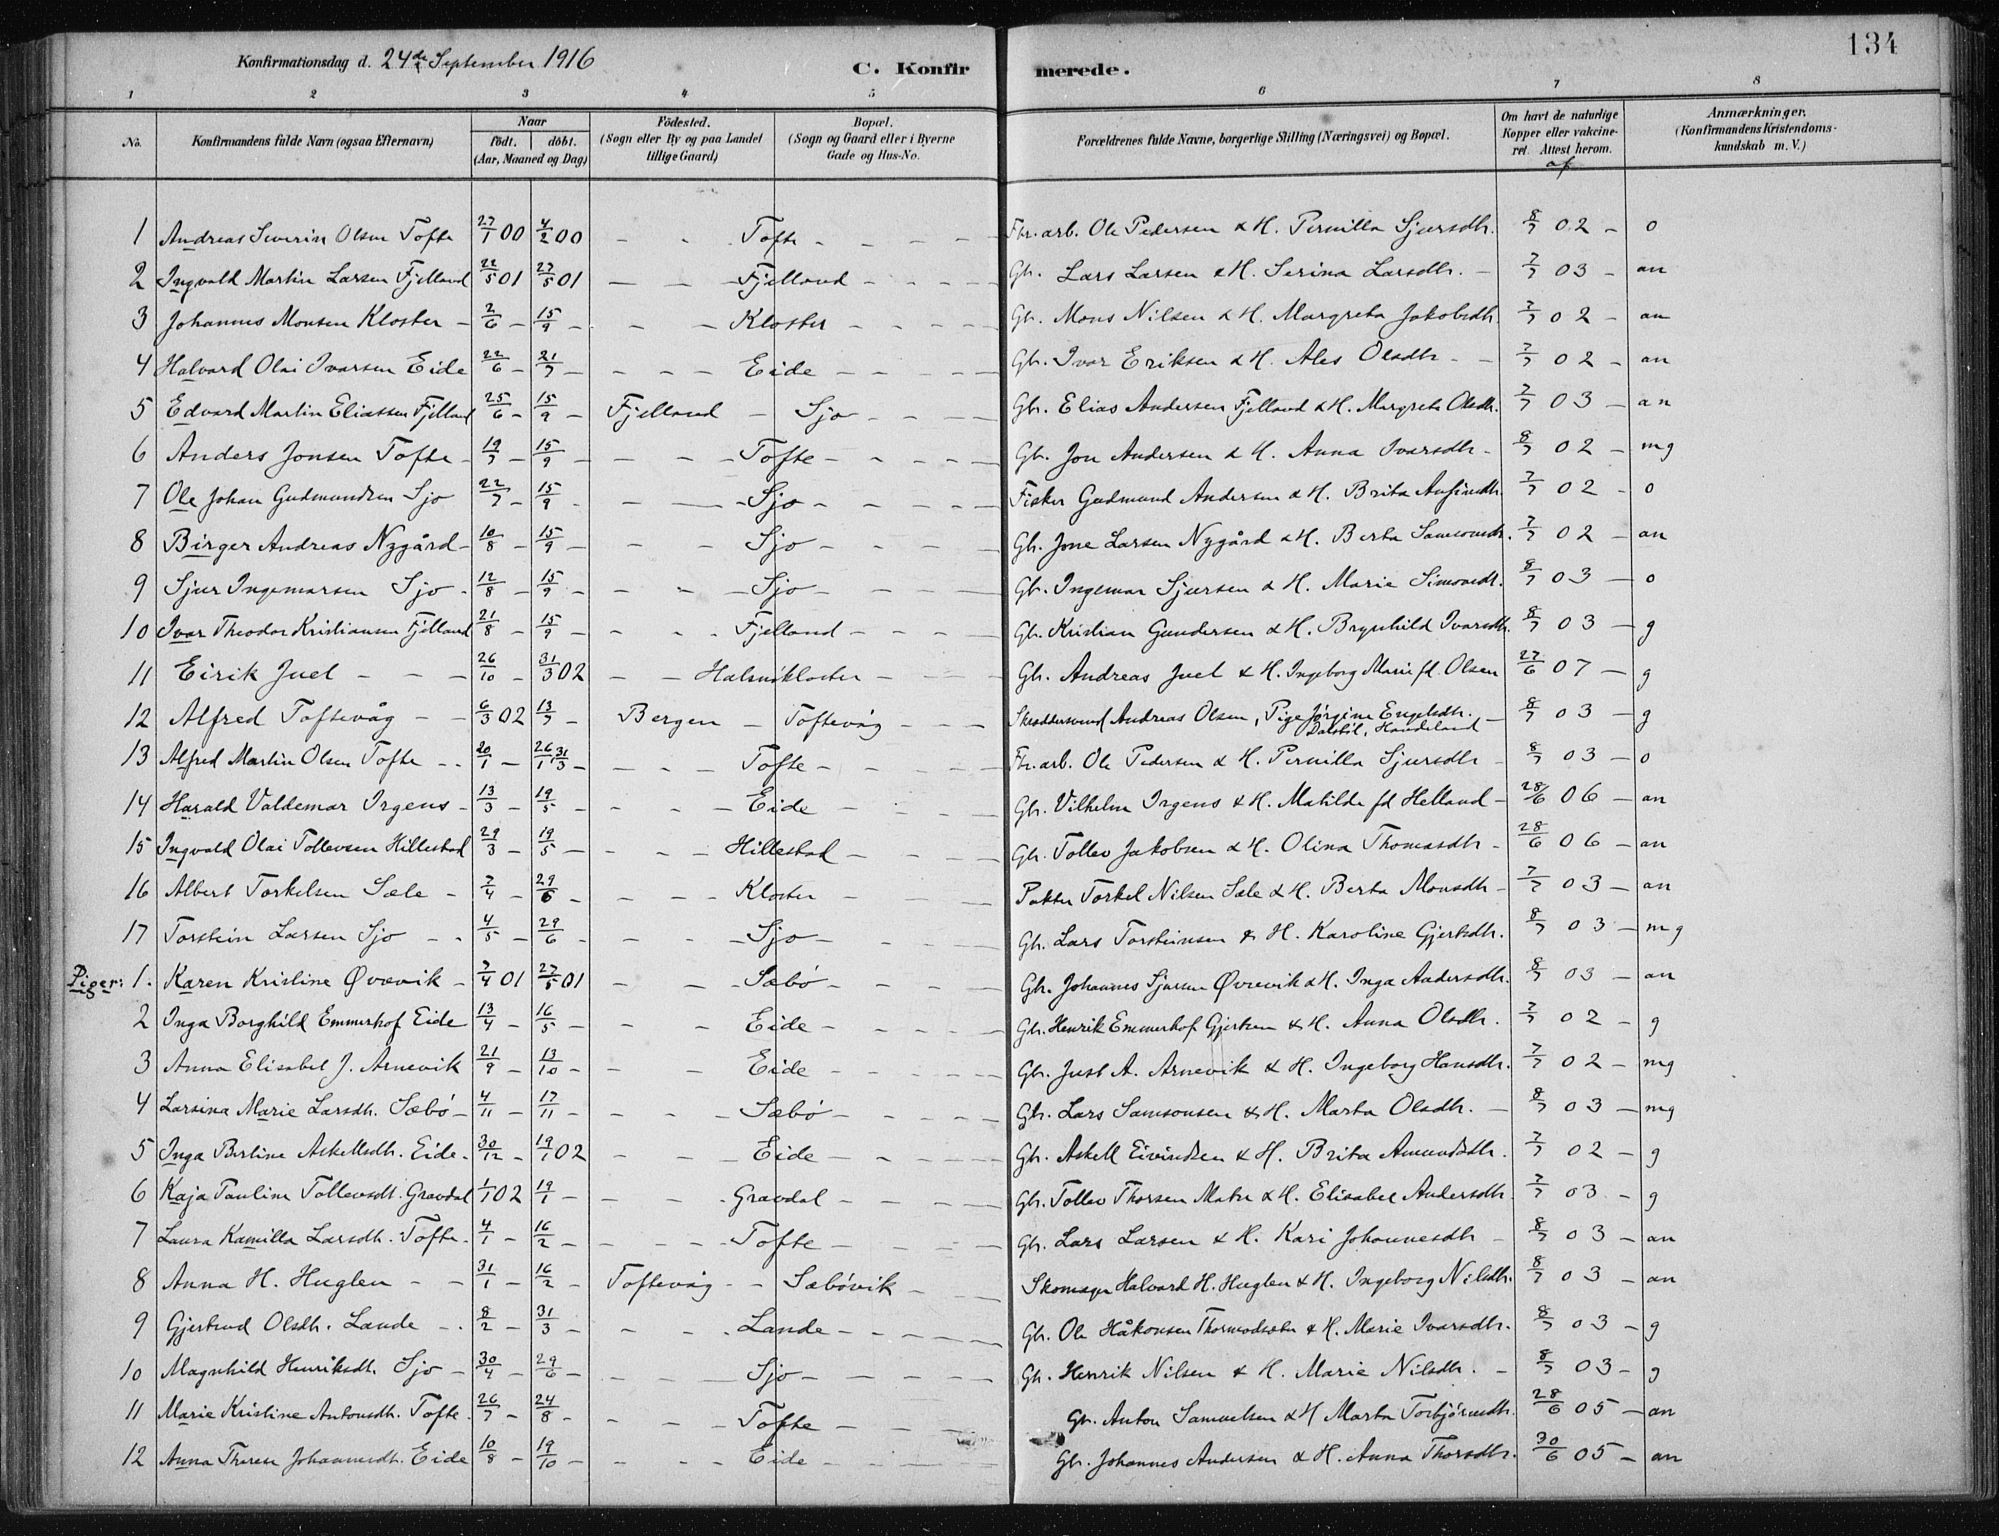 134
Konfirmationsdag d. 24de September 1916
C. Konfirmerede.
1 2 3 4 5 6 7 8
No. Konfirmandens fulde Navn (ogsaa Efternavn) Naar født. døbt. (Aar, Maaned og Dag) Fødested. (Sogn eller By og paa Landet tillige Gaard) Bopæl. (Sogn og Gaard eller i Byerne Gade og Hus-No. Forældrenes fulde Navne, borgerlige Stilling (Næringsvei) og Bopæl. Om havt de naturlige Kopper eller vakcineret. Attest herom. af Anmærkninger. (Konfirmandens Kristendomskundskab m. V.)
1 Andreas Severin Olsen Tofte 27/1 00 4/2 00 - - Tofte - - - - Fbr.arb. Ole Pedersen & H. Pernilla Sjursdtr. 8/7 02 - o
2 Ingvald Martin Larsen Fjelland 22/5 01 27/5 01 - - - Fjelland - - - - Gbr. Lars Larsen & H. Serina Larsdtr. - 7/7 03 - an
3 Johannes Monsen Kloster - 2/6 - 15/9 - - - - Kloster - - - - Gbr. Mons Nilsen & H. Margreta Jakobsdtr. 7/7 02 - an
4 Halvard Olai Ivarsen Eide 22/6 - 21/7 - - - - Eide - - - - Gbr. Ivar Eriksen & H. Ales Olsdtr - - 7/7 02 - an
5 Edvard Martin Eliassen Fjelland 25/6 - 15/9 - Fjelland - Sjo - - - - Gbr. Elias Andersen Fjelland & H. Margreta Olsdtr. 7/7 03 - an
6 Anders Jonsen Tofte - 19/7 - 15/9 - - - - Tofte - - - - Gbr. Jon Andersen & H. Anna Ivarsdtr - 8/7 02 - mg
7 Ole Johan Gudmundsen Sjo 22/7 - 15/9 - - - - Sjo - - - - Fisker Gudmund Andersen & H. Brita Anfindtr. 7/7 02 - o
8 Birger Andreas Nygård - 10/8 - 15/9 - - - - Sjo - - - - Gbr. Jone Larsen Nygård & H. Berta Samsonsdtr. 7/7 02 - an
9 Sjur Ingemarsen Sjo - 12/8 - 15/9 - - - - Sjo - - - - Gbr. Ingemar Sjursen & H. Marie Simonsdtr. 8/7 03 - o
10 Ivar Theodor Kristiansen Fjelland 21/8 - 15/9 - - - - Fjelland - - - - Gbr. Kristian Gundersen & H. Brynhild Ivarsdtr 8/7 03 - g
11 Eirik Juel - - - 26/10 - 31/3 02 - - Halsnökloster - - - - Gbr. Andreas Juel & H. Ingeborg Marie fd. Olsen 27/6 07 - g
12 Alfred Toftevåg - - 6/3 02 13/7 - Bergen - Toftevåg - - - Skreddersvend Andreas Olsen, Pige Jörgine Engelsdtr. Dalsböl, Handeland - 8/7 03 - g
13 Alfred Martin Olsen Tofte - - 20/1 - 26/1 31/3 - - - - Tofte - - - - Fbr.arb. Ole Pedersen & H. Pernilla Sjursdtr - 8/7 03 - o
14 Harald Valdemar Irgens - 13/3 - 19/5 - - - - Eide - - - - Gbr. Vilhelm Irgens & H. Matilde fd Helland - 28/6 06 - an
15 Ingvald Olai Tollevsen Hillestad 29/3 - 19/5 - - - - Hillestad - - - - Gbr. Tollev Jakobsen & H. Olina Thomasdtr - 28/6 06 - an
16 Albert Torkelsen Sæle - 7/4 - 29/6 - - - - Kloster - - - - Pakter Torkel Nilsen Sæle & H. Berta Monsdtr - 7/7 03 - an
17 Torstein Larsen Sjo - - 4/5 - 29/6 - - - - Sjo - - - - Gbr. Lars Torsteinsen & H. Karoline Gjertsdtr. 8/7 03 - mg
Piger: 1. Karen Kristine Øvrevik - 7/4 01 27/5 01 - - Sæbö - - - - Gbr. Johannes Sjursen Øvrevik & H. Inga Andersdtr. 8/7 03 - an
2 Inga Borghild Emmerhof Eide 13/4 - 16/5 - - - Eide - - - - Gbr. Henrik Emmerhof Gjertsen & H. Anna Olsdtr. 7/7 02 - g
3 Anna Elisabet J. Arnevik 21/9 - 13/10 - - - Eide - - - - Gbr. Just A. Arnevik & H. Ingeborg Hansdtr. 7/7 02 - mg
4 Larsina Marie Larsdtr. Sæbö - 4/11 - 17/11 - - - Sæbö - - - - Gbr. Lars Samsonsen & H. Marta Olsdtr. - 8/7 03 - mg
5 Inga Bertine Askellsdtr. Eide - 30/12 - 19/1 02 - - Eide - - - - Gbr. Askell Eivindsen & H. Brita Amundsdtr. 7/7 02 - g
6 Kaja Pauline Tollevsdtr. Gravdal 1/1 02 19/1 - - - Gravdal - - - Gbr. Tollev Thorsen Matre & H. Elisabet Andersdtr. 7/7 03 - g
7 Laura Kamilla Larsdtr. Tofte - 4/1 - 16/2 - - - - Tofte - - - - Gbr. Lars Larsen & H. Kari Johannesdtr - 8/7 03 - an
8 Anna H. Huglen - - 31/1 - 16/2 - Toftevåg - - Sæbövik - - - Skomager Halvard H. Huglen & H. Ingeborg Nilsdtr. 8/7 03 - an
9 Gjertrud Olsdtr. Lande - - 8/2 - 31/3 - - - - Lande - - - - Gbr. Ole Håkonsen Thormodsæter & H. Marie Ivarsdtr. 8/7 03 - g
10 Magnhild Henriksdtr. Sjo - 30/4 - 29/6 - - - - Sjo - - - - Gbr. Henrik Nilsen & H. Marie Nilsdtr. - 8/7 03 - g
11 Marie Kristine Antonsdtr. Tofte - 26/7 - 24/8 - - - - Tofte - - - Gbr. Anton Samuelsen & H Marta Torbjörnsdtr. 28/6 05 - an
12 Anna Therese Johannesdtr. Eide 10/8 - 19/10 - - - - Eide - - - Gbr. Johannes Andersen & H. Anna Thorsdtr. 30/6 05 - an